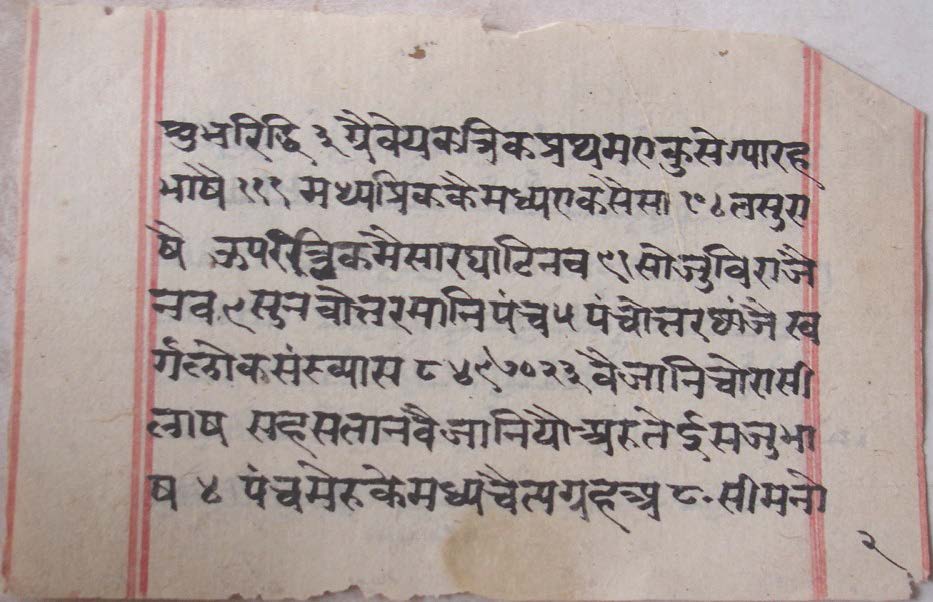 शुभरिद्धि ३ ग्रैवेयकत्रिकप्रथमएकुसेग्यारह
भाषै १११ मध्यत्रिककैमध्यएकसैसा १०८ लसुरा
षै ऊपरीत्रिकमैसारघाटिनव ९१ सोजुविराजै
नव ९ सुनवोत्तरमानिपंच ५ पंचोत्तरछाजै स्व
र्गलोकसंख्यास ८४९७०२३ वैजानिचोरासी
लाष सहससतानवैजानियौ अरुतेईसजुभा
ष ४ पंचमेरुकेमध्यचैत्यगृहअ ८० सीमनौ
२